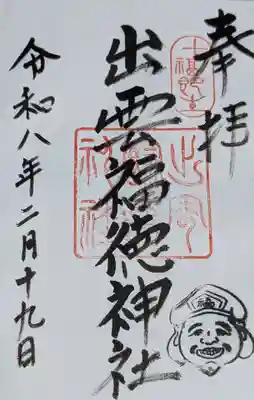 奉拝
出雲福徳神社
令和八年二月十九日